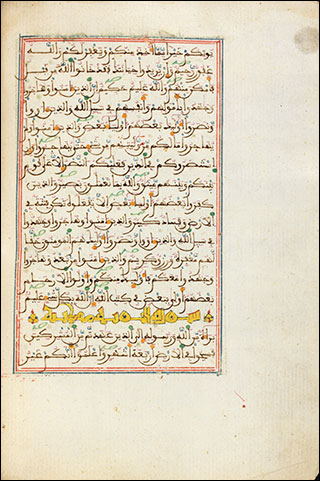 يوتكم خيرا مما اخذ منكم ويغفر لكم والله
غفور رحيم وان يريدوا خيانتك فقد خانوا الله من قبل
فامكن منهم والله عليم حكيم ان الذين امنوا وهاجروا
وجهدوا باموالهم وانفسهم في سبيل الله والذين اووا
ونصروا اوليك بعضهم اوليا بعض والذين امنوا ولم
يهاجروا ما لكم من وليتهم من شي حتى يهاجروا وان
استنصروكم في الدين فعليكم النصر الا على قوم
بينكم وبينهم ميثق والله بما تعملون بصير والذين
كفروا بعضهم اوليا بعض الا تفعلوه تكن فتنة في
الارض وفساد كبير والذين امنوا وهاجروا وجهدوا
في سبيل الله والذين اووا ونصروا اوليك هم المومنون حقا
لهم مغفرة ورزق كريم والذين امنوا من بعد وهاجروا
وجهدوا معكم فاوليك منكم واولوا الارحام
بعضهم اولى ببعض في كتب الله ان الله بكل شي عليم
سورة التوبة مدنية
براة من الله ورسوله الى الذين عهدتم من المشركين
فسيحوا في الارض اربعة اشهر واعلموا انكم غير